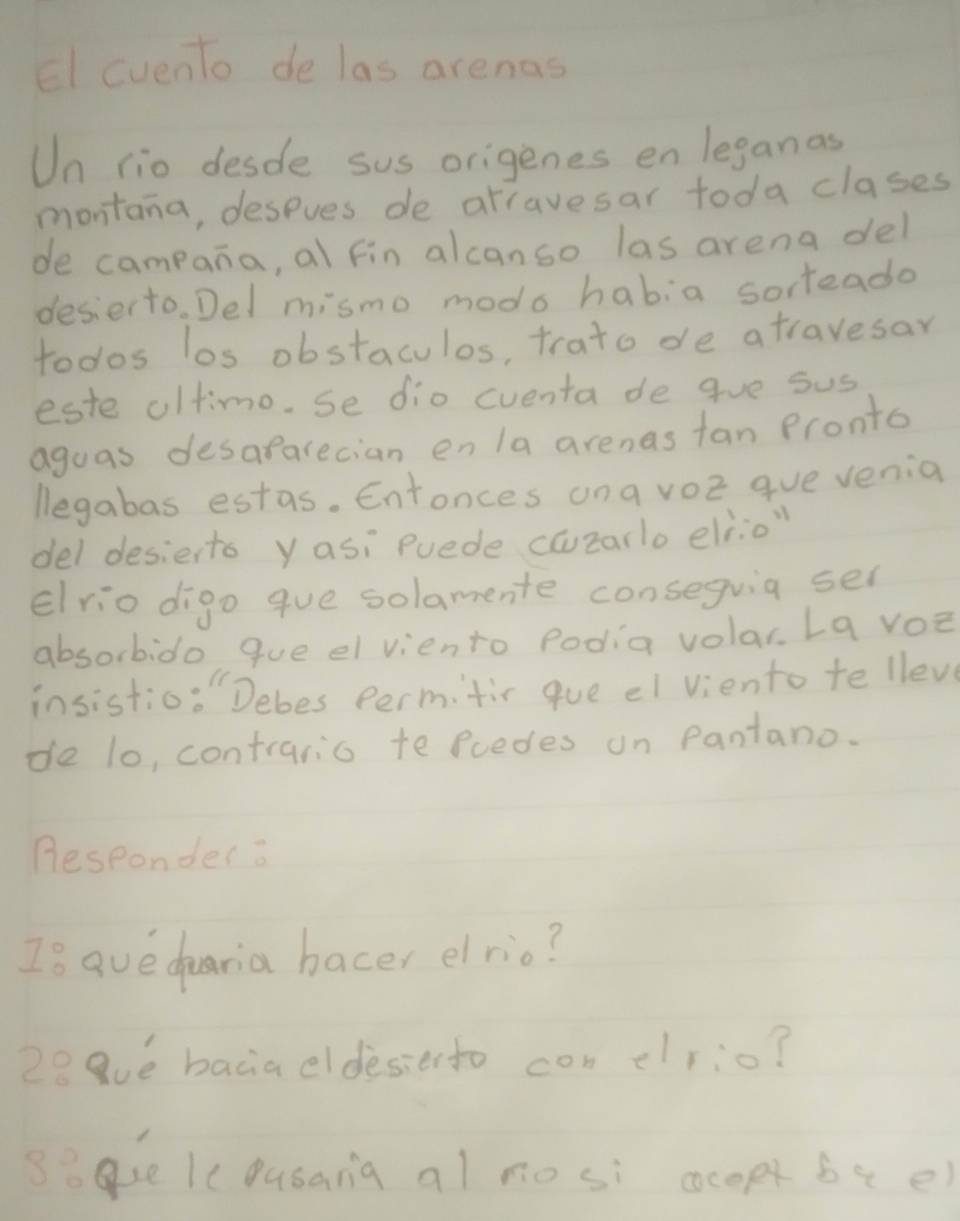 El cuento de las arenas
Un rio desde sus origenes en leganas
montaña, despues de atravesar toda clases
de campaña, al fin alcanso las arena del
desierto. Del mismo modo habia sorteado
todos los obstaculos, trato de atravesar
este ultimo. se dio cuenta de que sus
aguas desaparecian en la arenas tan pronto
llegabas estas. Entonces una voz que venia
del desierto y asi puede cruzarlo el rio"
El rio digo que solamente conseguia ser
absorbido que el viento podia volar. La voz
insistio: "Debes permitir que el viento te lleve
de lo, contrario te puedes un pantano.
Responder:
1: qué quaria hacer el rio?
2: Qué hacia el desierto con el rio?
3: Qué le pasaria al rio si el